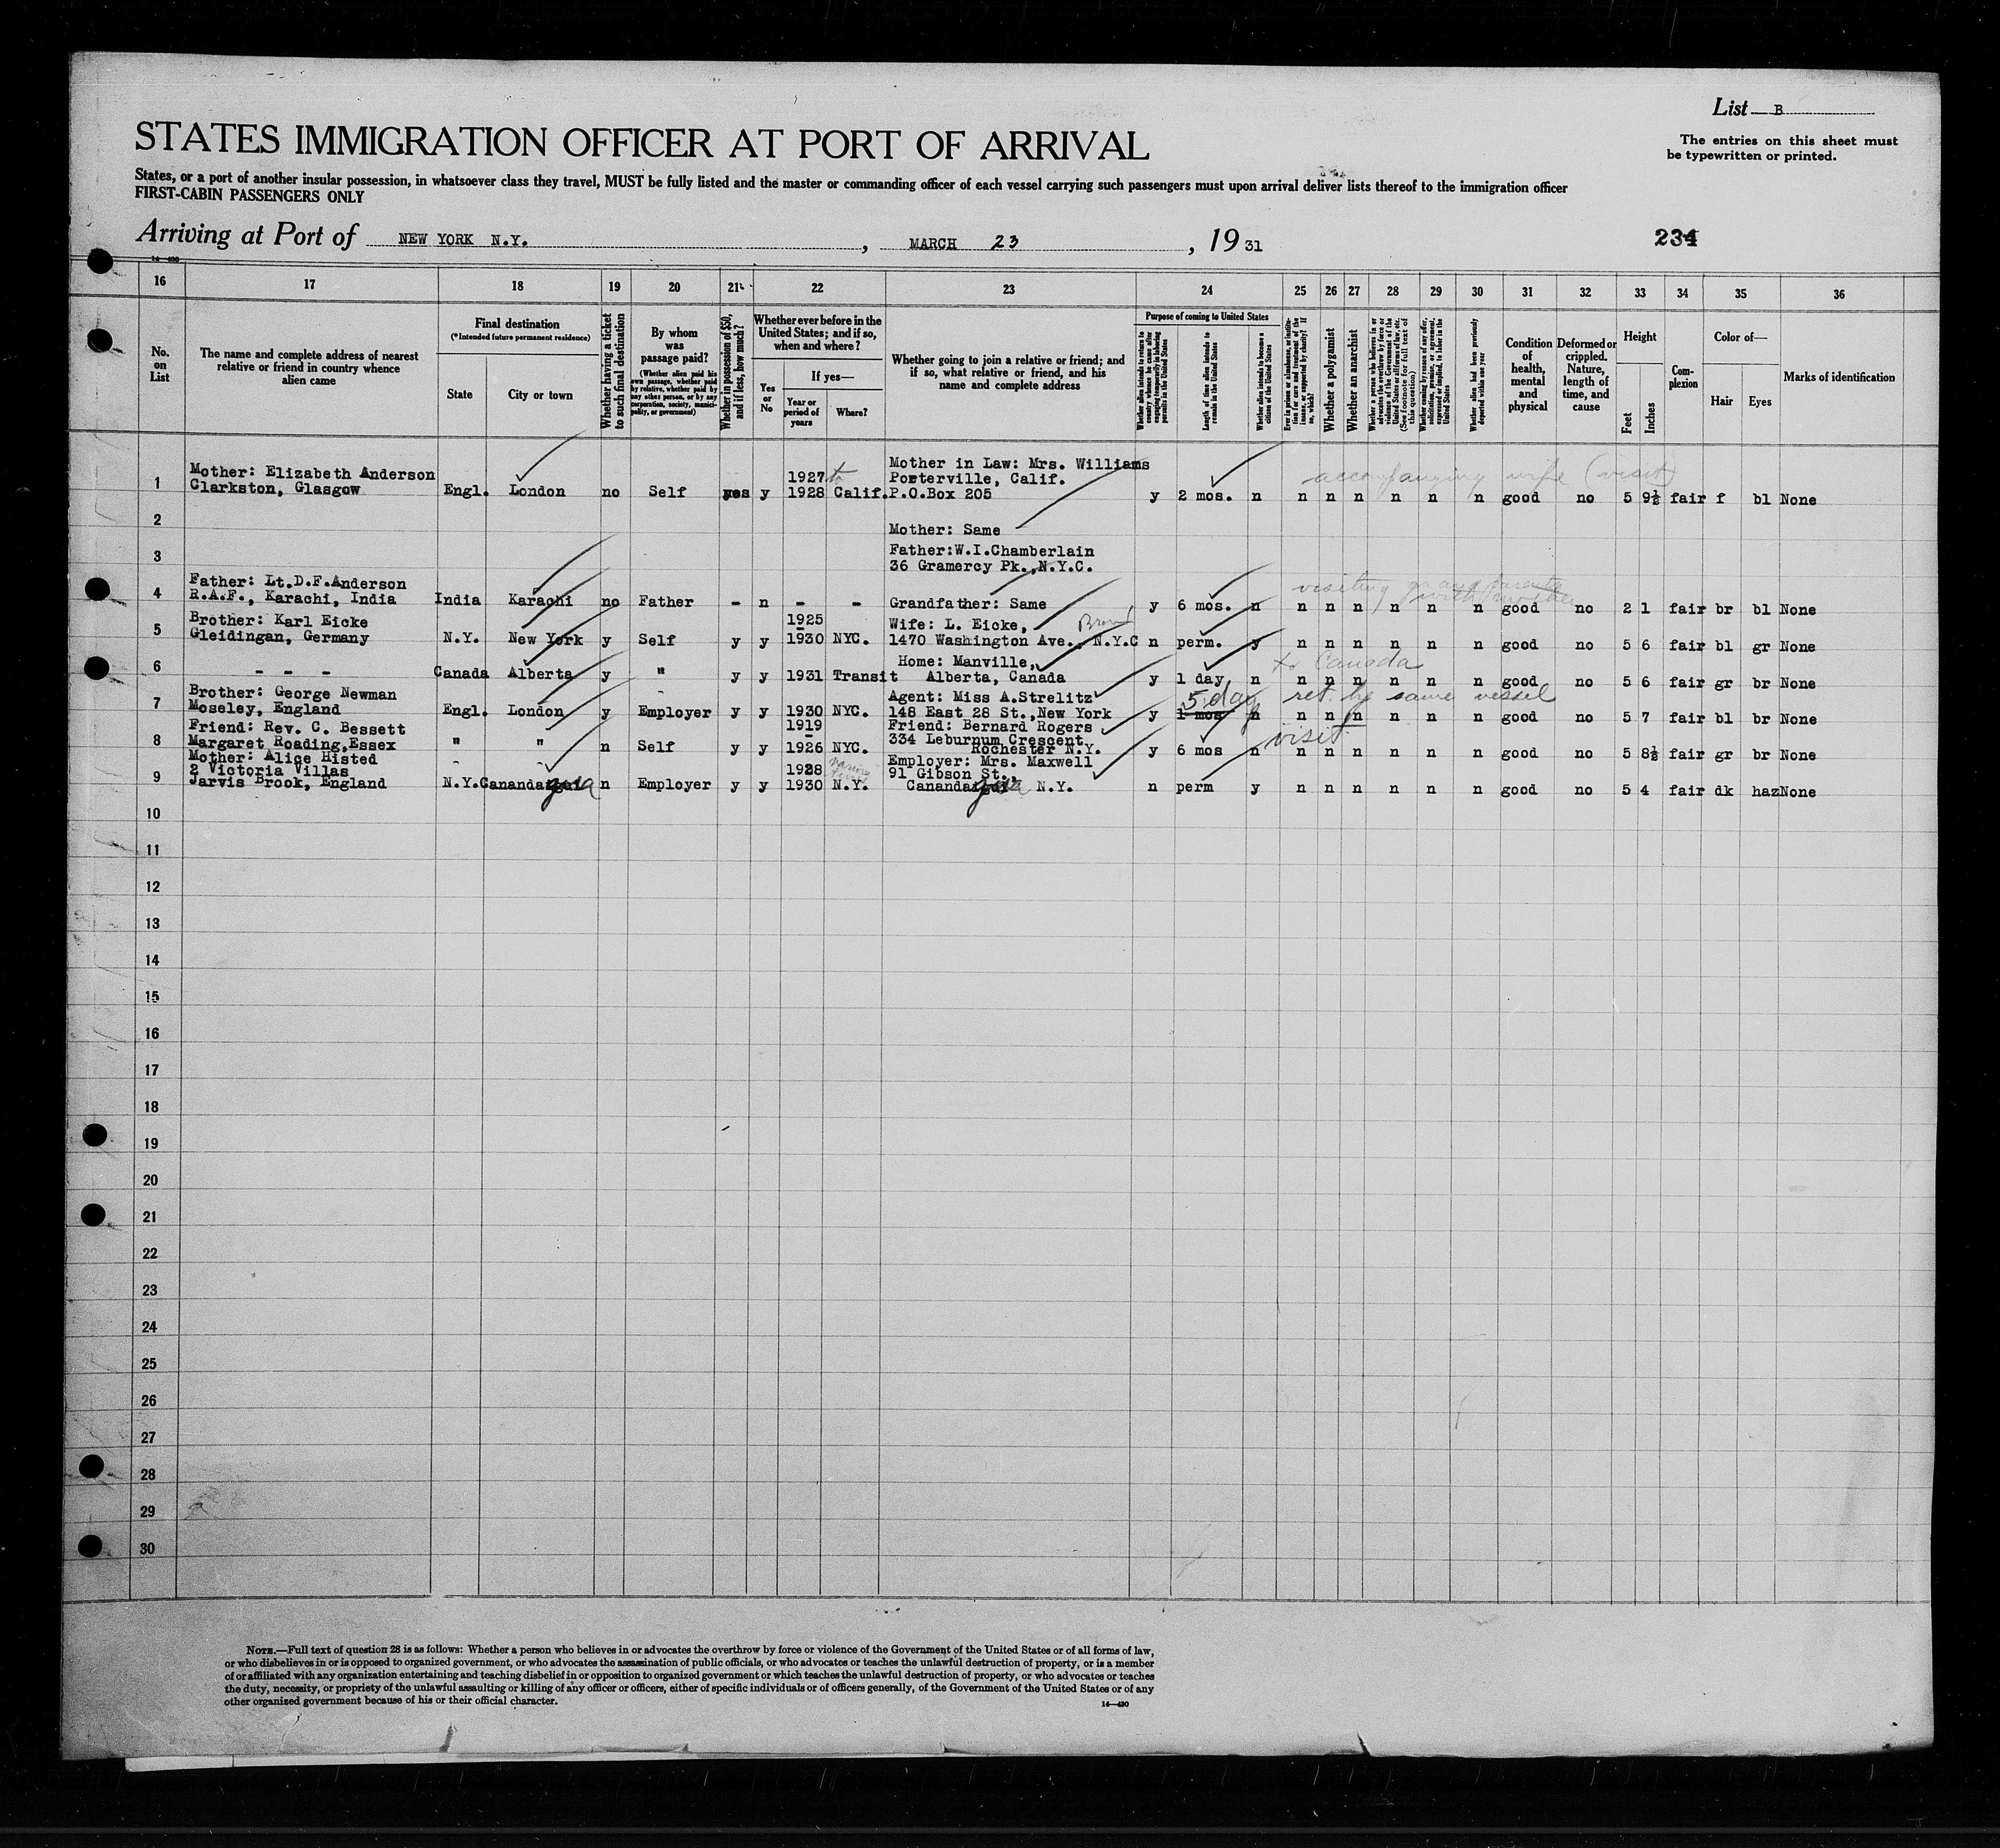 List B
STATES IMMIGRATION OFFICER AT PORT OF ARRIVAL
The entries on this sheet must
be typewritten or printed.
States, or a port of another insular possession, in whatsoever class they travel, MUST be fully listed and the master or commanding officer of each vessel carrying such passengers must upon arrival deliver lists thereof to the immigration officer
FIRST-CABIN PASSENGERS ONLY
Arriving at Port of NEW YORK N.Y., MARCH 23, 1931
234
14—430
16 17 18 19 20 21 22 23 24 25 26 27 28 29 30 31 32 33 34 35 36
No. on List
The name and complete address of nearest relative or friend in country whence alien came
Final destination
(*Intended future permanent residence)
State
City or town
Whether having a ticket to such final destination
By whom was passage paid?
(Whether alien paid his own passage, whether paid by relative, whether paid by any other person, or by any corporation, society, municipality, or government)
Whether in possession of $50, and if less, how much?
Whether ever before in the United States; and if so, when and where?
Yes or No
If yes—
Year or period of years
Where?
Whether going to join a relative or friend; and if so, what relative or friend, and his name and complete address
Purpose of coming to United States
Whether alien intends to return to country whence he came after engaging temporarily in laboring pursuits in the United States
Length of time alien intends to remain in the United States
Whether alien intends to become a citizen of the United States
Ever in prison or almshouse, or institution for care and treatment of the insane, or supported by charity? If so, which?
Whether a polygamist
Whether an anarchist
Whether a person who believes in or advocates the overthrow by force or violence of the Government of the United States or all forms of law, etc. (See footnote for full text of this question)
Whether coming by reason of any offer, solicitation, promise, or agreement, expressed or implied, to labor in the United States
Whether alien had been previously deported within one year
Condition of health, mental and physical
Deformed or crippled. Nature, length of time, and cause
Height
Feet
Inches
Complexion
Color of—
Hair
Eyes
Marks of identification
accompanying wife (visit)
1 Mother: Elizabeth Anderson
Clarkston, Glasgow Engl. London no Self yes y 1927 to 1928 Calif. Mother in Law: Mrs. Williams
Porterville, Calif.
P.O.Box 205 y 2 mos. n n n n n n n good no 5 9½ fair f bl None
2 Mother: Same
3 Father:W.I.Chamberlain
36 Gramercy Pk.,N.Y.C.
visiting grandparents
with mother
4 Father: Lt.D.F.Anderson
R.A.F., Karachi, India India Karachi no Father - n - - Grandfather: Same y 6 mos. n n n n n n n good no 2 1 fair br bl None
5 Brother: Karl Eicke
Gleidingan, Germany N.Y. New York y Self y y 1925 - 1930 NYC. Wife: L. Eicke, Bronx
1470 Washington Ave., N.Y.C n perm. y n n n n n n good no 5 6 fair bl gr None
to Canada
6 - - - Canada Alberta y " y y 1931 Transit Home: Manville,
Alberta, Canada y 1 day n n n n n n n good no 5 6 fair gr br None
5 day ret by same vessel
7 Brother: George Newman
Moseley, England Engl. London y Employer y y 1930 NYC. Agent: Miss A.Strelitz
148 East 28 St.,New York y 1 mos n n n n n n n good no 5 7 fair bl br None
visit
8 Friend: Rev. C. Bessett
Margaret Roading,Essex " " n Self y y 1919 - 1926 NYC. Friend: Bernard Rogers
334 Leburnum Crescent
Rochester N.Y. y 6 mos n n n n n n n good no 5 8½ fair gr br None
9 Mother: Alice Histed
2 Victoria Villas
Jarvis Brook, England N.Y. Canandaigua n Employer y y 1928 1930 N.Y. Employer: Mrs. Maxwell
91 Gibson St.,
Canandaigua N.Y. n perm y n n n n n n good no 5 4 fair dk haz None
10
11
12
13
14
15
16
17
18
19
20
21
22
23
24
25
26
27
28
29
30
NOTE.—Full text of question 28 is as follows: Whether a person who believes in or advocates the overthrow by force or violence of the Government of the United States or of all forms of law,
or who disbelieves in or is opposed to organized government, or who advocates the assassination of public officials, or who advocates or teaches the unlawful destruction of property, or is a member
of or affiliated with any organization entertaining and teaching disbelief in or opposition to organized government or which teaches the unlawful destruction of property, or who advocates or teaches
the duty, necessity, or propriety of the unlawful assaulting or killing of any officer or officers, either of specific individuals or of officers generally, of the Government of the United States or of any
other organized government because of his or their official character.
14—430